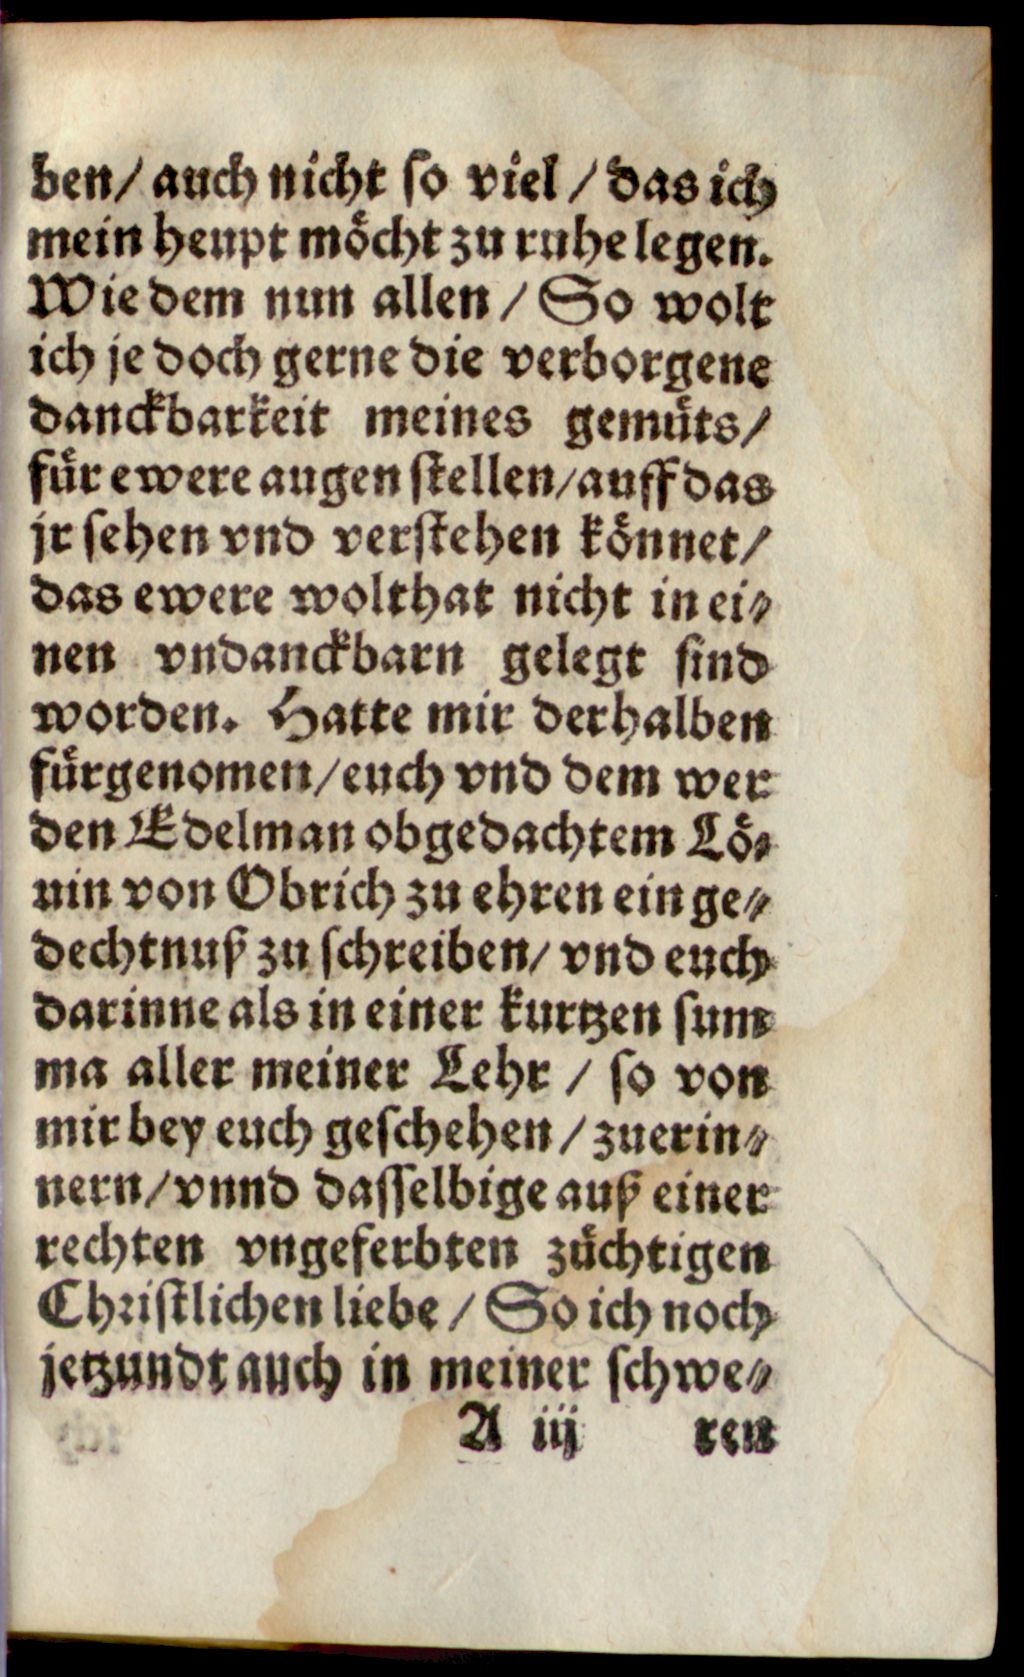 ben/ auch nicht so viel / das ich
mein heupt möcht zu ruhe legen.
Wie dem nun allen / So wolt
ich je doch gerne die verborgene
danckbarkeit meines gemüts/
für ewere augen stellen/auff das
jr sehen vnd verstehen könnet/
das ewere wolthat nicht in ei⸗
nen vndanckbarn gelegt sind
worden. Hatte mir derhalben
fürgenomen/euch vnd dem wer
den Edelman obgedachtem Lö⸗
uin von Obrich zu ehren ein ge⸗
dechtnuß zu schreiben/ vnd euch
darinne als in einer kurtzen sum
ma aller meiner Lehr / so von
mir bey euch geschehen / zuerin⸗
nern/vnnd dasselbige auß einer
rechten vngeferbten züchtigen
Christlichen liebe / So ich noch
jetzundt auch in meiner schwe⸗
A iij ren